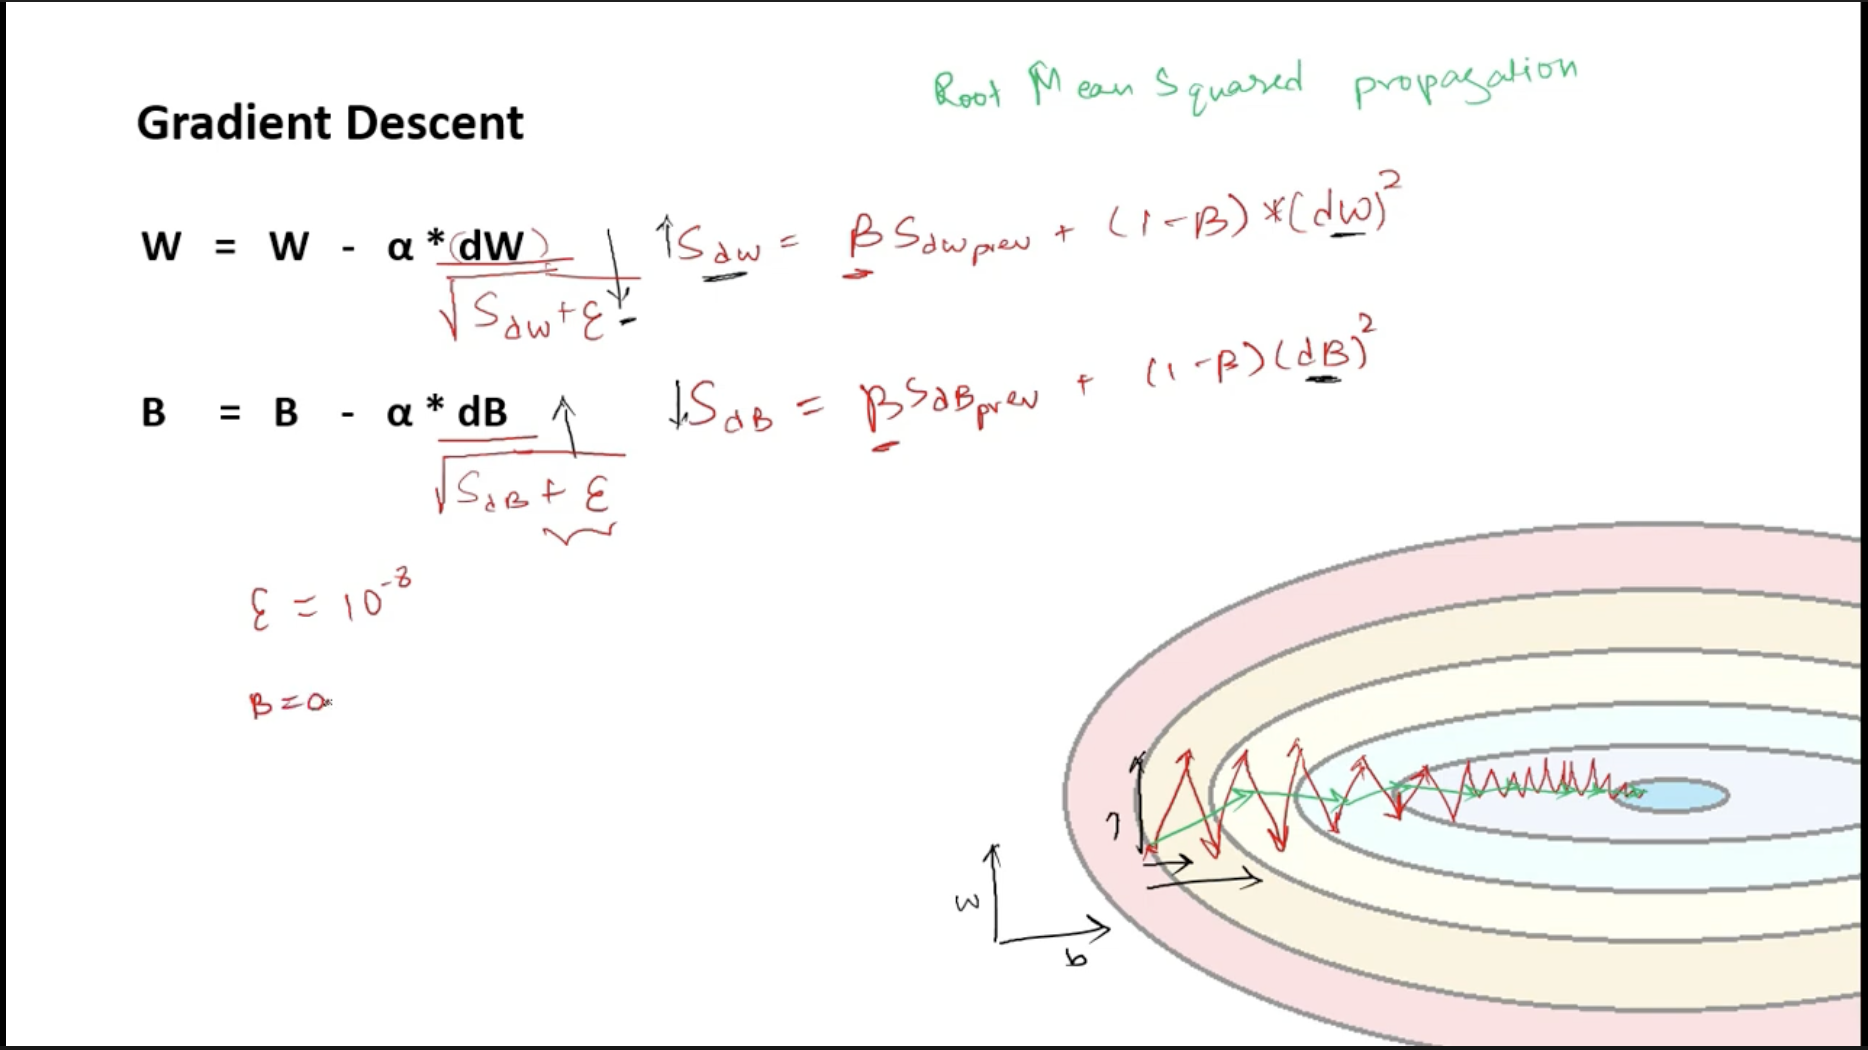 Root Mean Squared propagation
Gradient Descent
W = W - α * (dW) / √(S_dw + ε)
↑S_dw = β S_dw prev + (1-β) * (dw)²
B = B - α * dB / √(S_dB + ε)
↓S_dB = β S_dB prev + (1-β)(dB)²
ε = 10⁻⁸
β = 0.
w
b